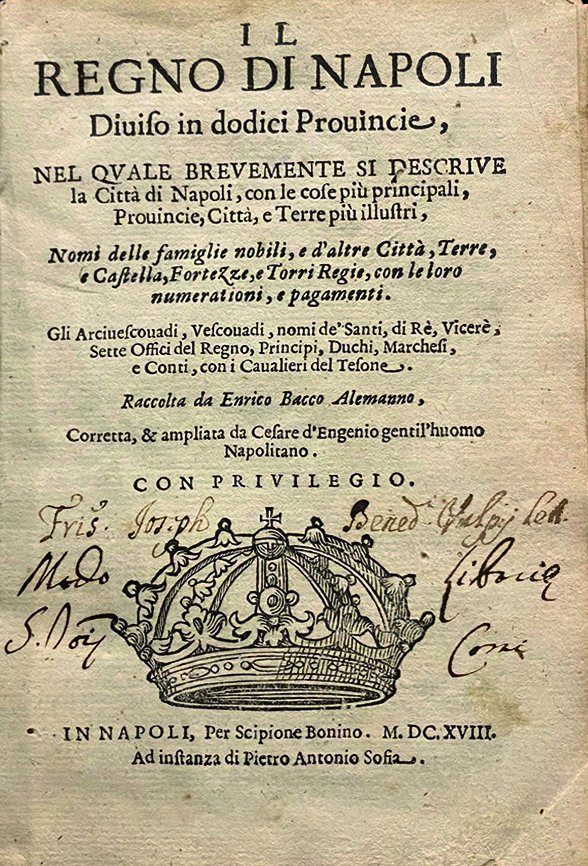 IL
REGNO DI NAPOLI
Diuiſo in dodici Prouincie,
NEL QVALE BREVEMENTE SI DESCRIVE
la Città di Napoli, con le coſe più principali,
Prouincie, Città, e Terre più illuſtri,
Nomi delle famiglie nobili, e d'altre Città, Terre,
e Caſtella, Fortezze, e Torri Regie, con le loro
numerationi, e pagamenti.
Gli Arciueſcouadi, Veſcouadi, nomi de'Santi, di Rè, Vicerè,
Sette Offici del Regno, Principi, Duchi, Marcheſi,
e Conti, con i Caualieri del Teſone.
Raccolta da Enrico Bacco Alemanno,
Corretta, & ampliata da Ceſare d'Engenio gentil'huomo
Napolitano.
CON PRIVILEGIO.
Joseph Bened.
IN NAPOLI, Per Scipione Bonino. M. DC. XVIII.
Ad inſtanza di Pietro Antonio Sofia.